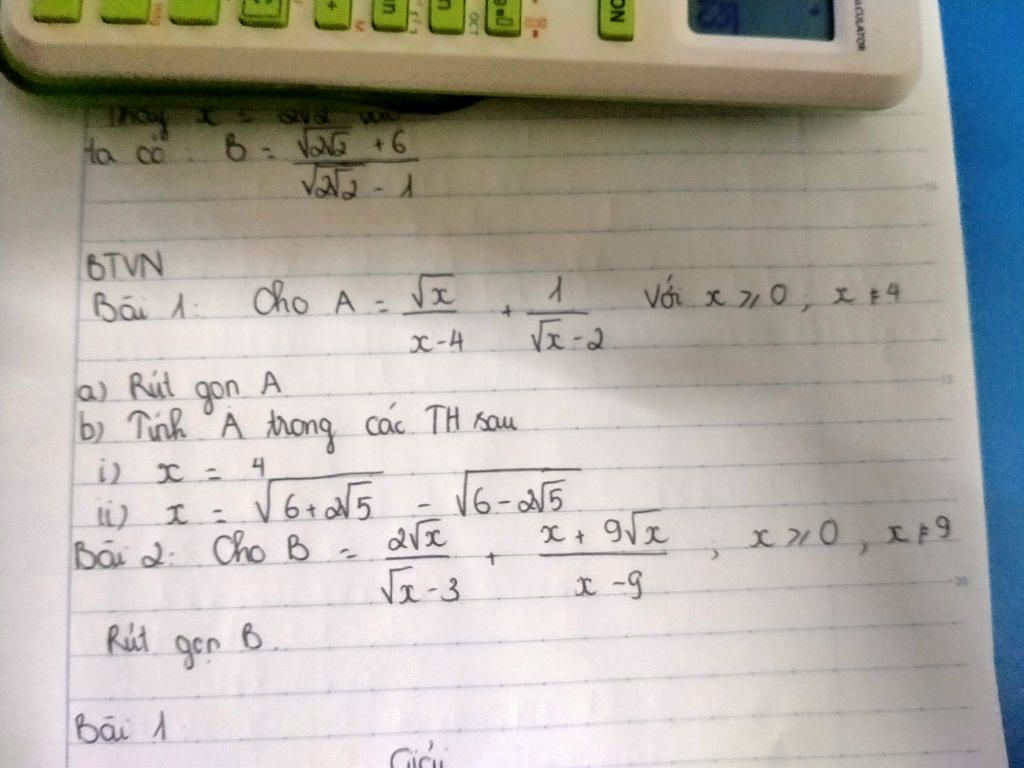 ON
CALCULATOR
OCT
Thay x = 2√2
ta có : B = (√(2√2) + 6) / (√(2√2) - 1)
BTVN
Bài 1: Cho A = √x / (x-4) + 1 / (√x - 2) Với x ⩾ 0, x ≠ 4
a) Rút gọn A
b) Tính A trong các TH sau
i) x = 4
ii) x = √(6+2√5) - √(6-2√5)
Bài 2: Cho B = 2√x / (√x - 3) + (x + 9√x) / (x - 9) ; x ⩾ 0, x ≠ 9
Rút gọn B.
Bài 1:
Giải